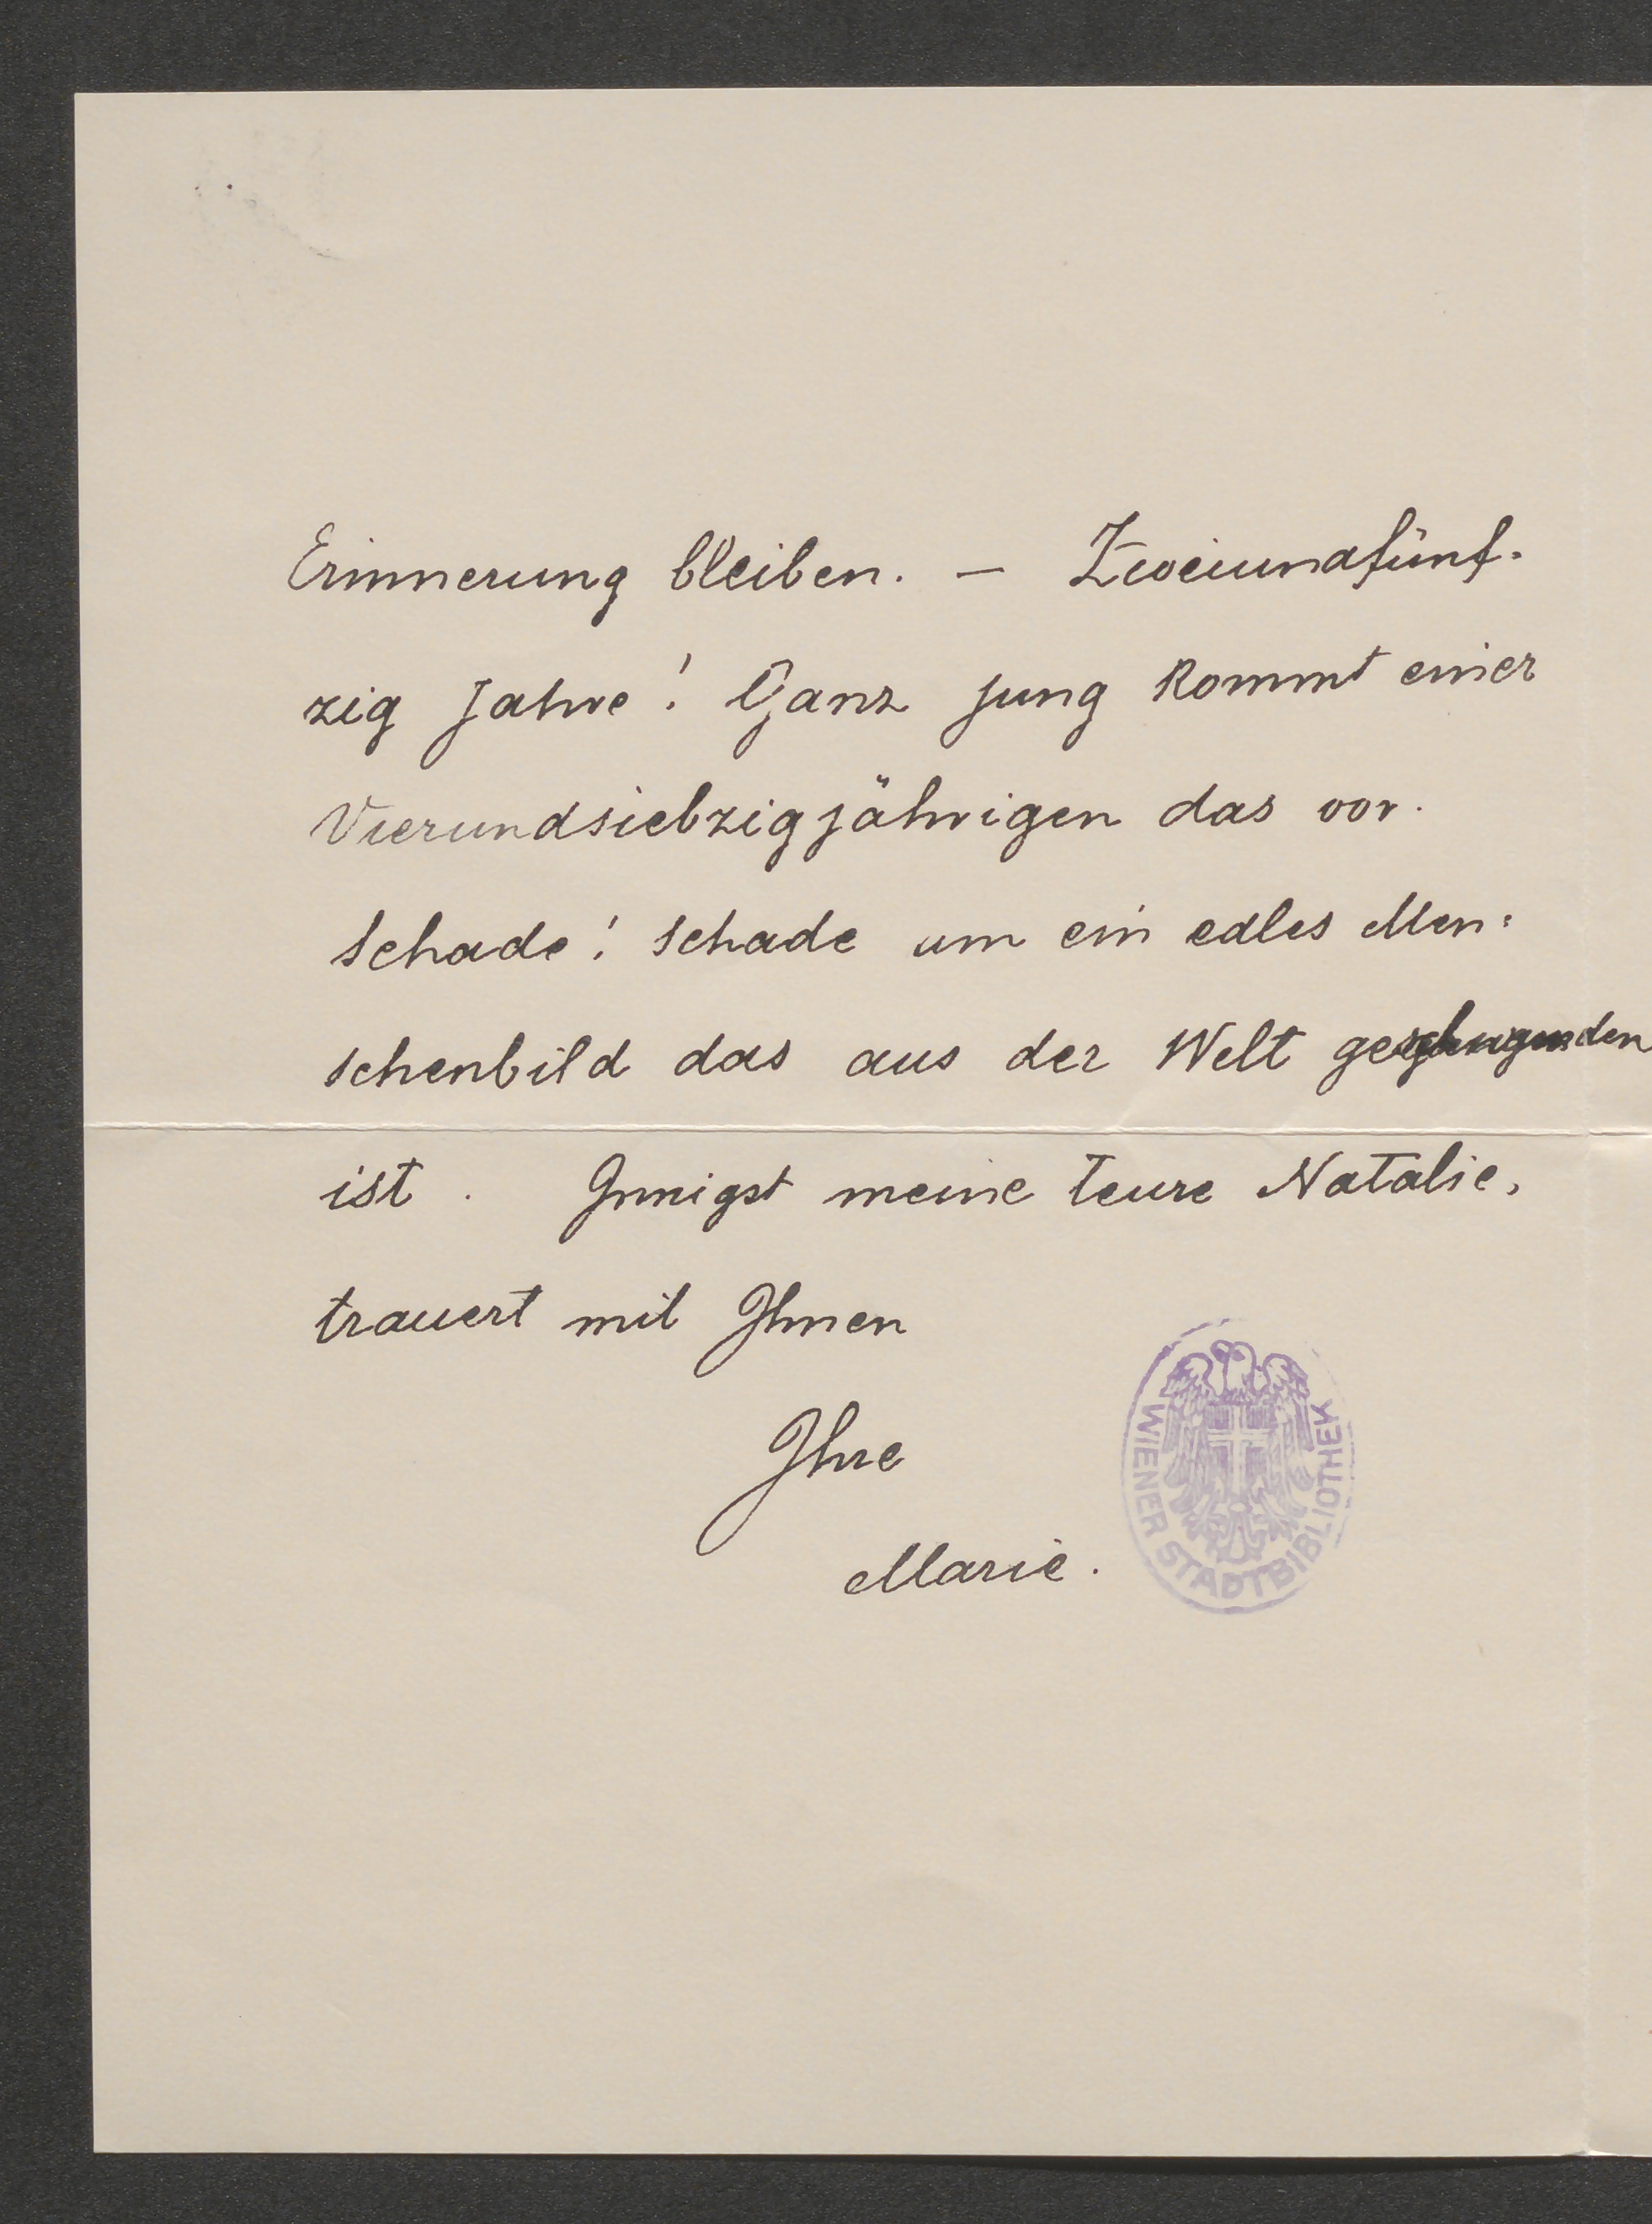 Erinnerung bleiben. — Zweiundfünf-
zig Jahre! Ganz jung kommt einer
Vierundsiebzigjährigen das vor.
Schade! Schade um ein edles Men-
schenbild das aus der Welt
ist. Innigst meine teure Natalie,
trauert mit Ihnen
Ihre
Marie.
WIENER STADTBIBLIOTHEK